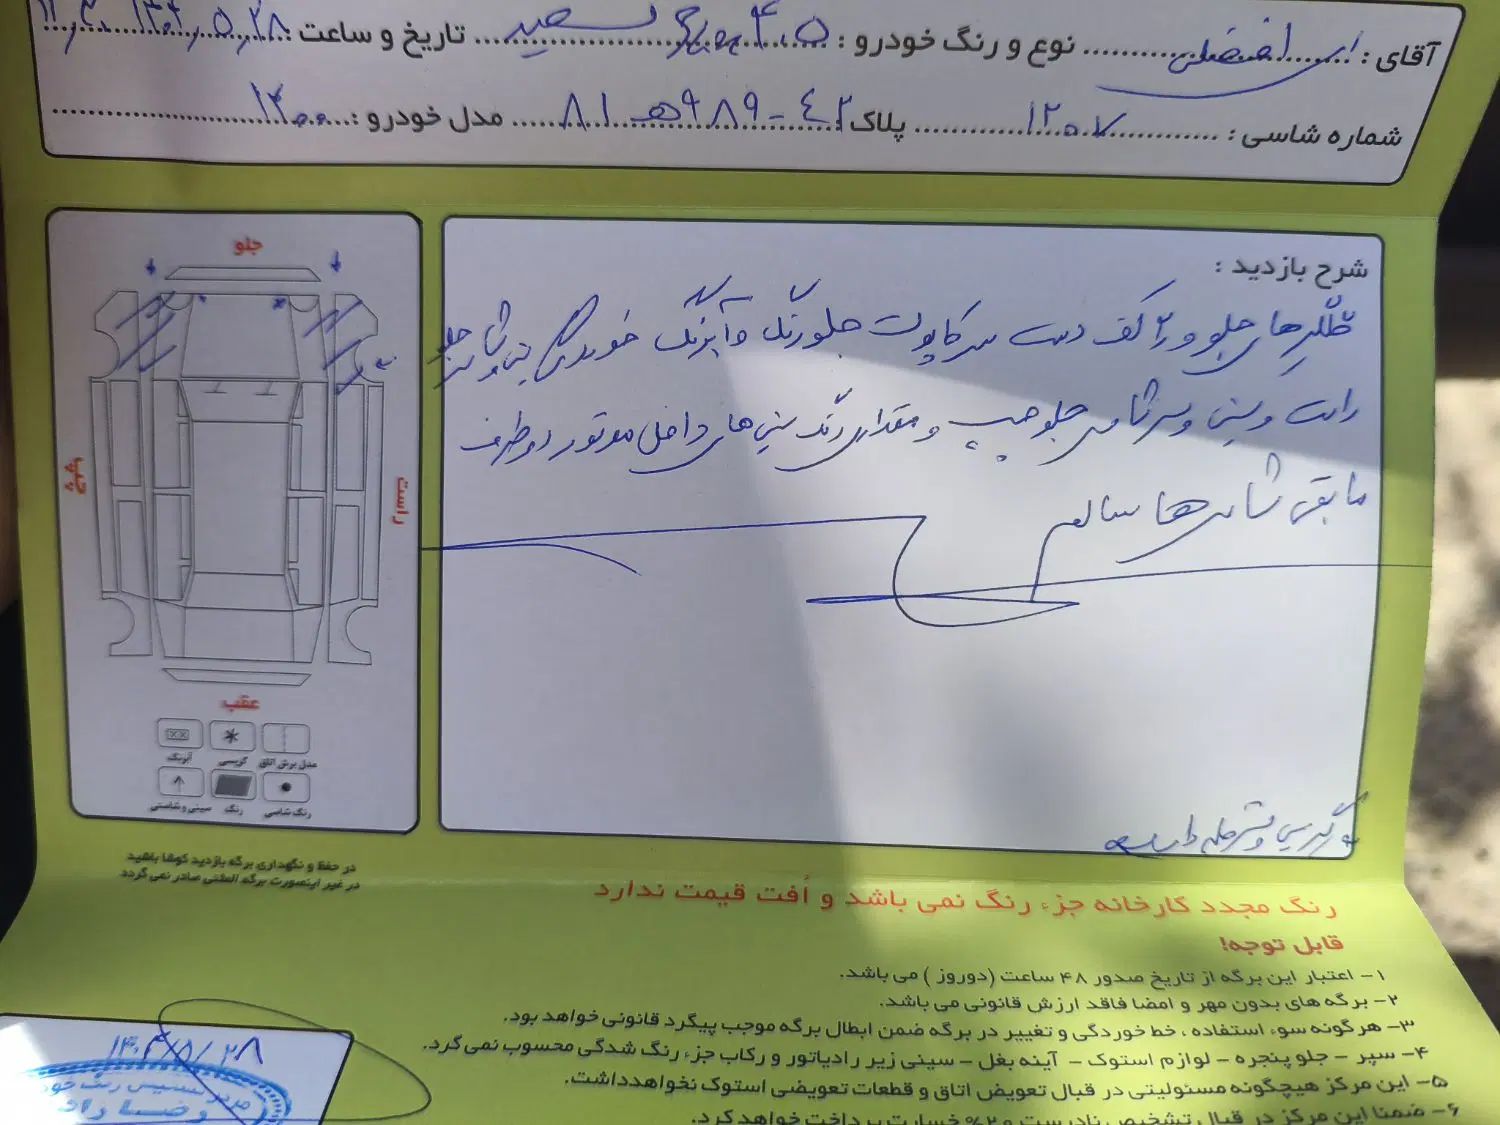 آقای : ... نوع و رنگ خودرو : ۴۰۵ ... سفید تاریخ و ساعت ۱۴۰۴/۵/۲۸
شماره شاسی : ۱۲۰۷ پلاک ۴۲ - ۹۸۹هـ ۸۱ مدل خودرو : ۱۴۰۰
شرح بازدید :
گلگیرهای جلو و ۲ کف دست سر کاپوت جلو رنگ و آبرنگ خوردگی سینی و شاسی جلو
راست و سینی و سر شاسی جلو چپ و مقداری رنگ سینی های داخل موتور دو طرف
مابقی شاسی ها سالم
جلو
راست
چپ
عقب
مدل برش اتاق
گریسی
آبرنگ
رنگ شاسی
رنگ
سینی و شاسی
در حفظ و نگهداری برگه بازدید کوشا باشید
در غیر اینصورت برگه المثنی صادر نمی گردد
رنگ مجدد کارخانه جزء رنگ نمی باشد و اُفت قیمت ندارد
قابل توجه!
۱- اعتبار این برگه از تاریخ صدور ۴۸ ساعت (دوروز ) می باشد.
۲- برگه های بدون مهر و امضا فاقد ارزش قانونی می باشد.
۳- هرگونه سوء استفاده ، خط خوردگی و تغییر در برگه ضمن ابطال برگه موجب پیگرد قانونی خواهد بود.
۴- سپر - جلو پنجره - لوازم استوک - آینه بغل - سینی زیر رادیاتور و رکاب جزء رنگ شدگی محسوب نمی گردد.
۵- این مرکز هیچگونه مسئولیتی در قبال تعویض اتاق و قطعات تعویضی استوک نخواهدداشت.
۶- ضمنا این مرکز در قبال تشخیص نادرست و ۲% خسارت پرداخت خواهد کرد.
۱۴۰۴/۵/۲۸
مرکز تشخیص رنگ خودرو
رضا راد